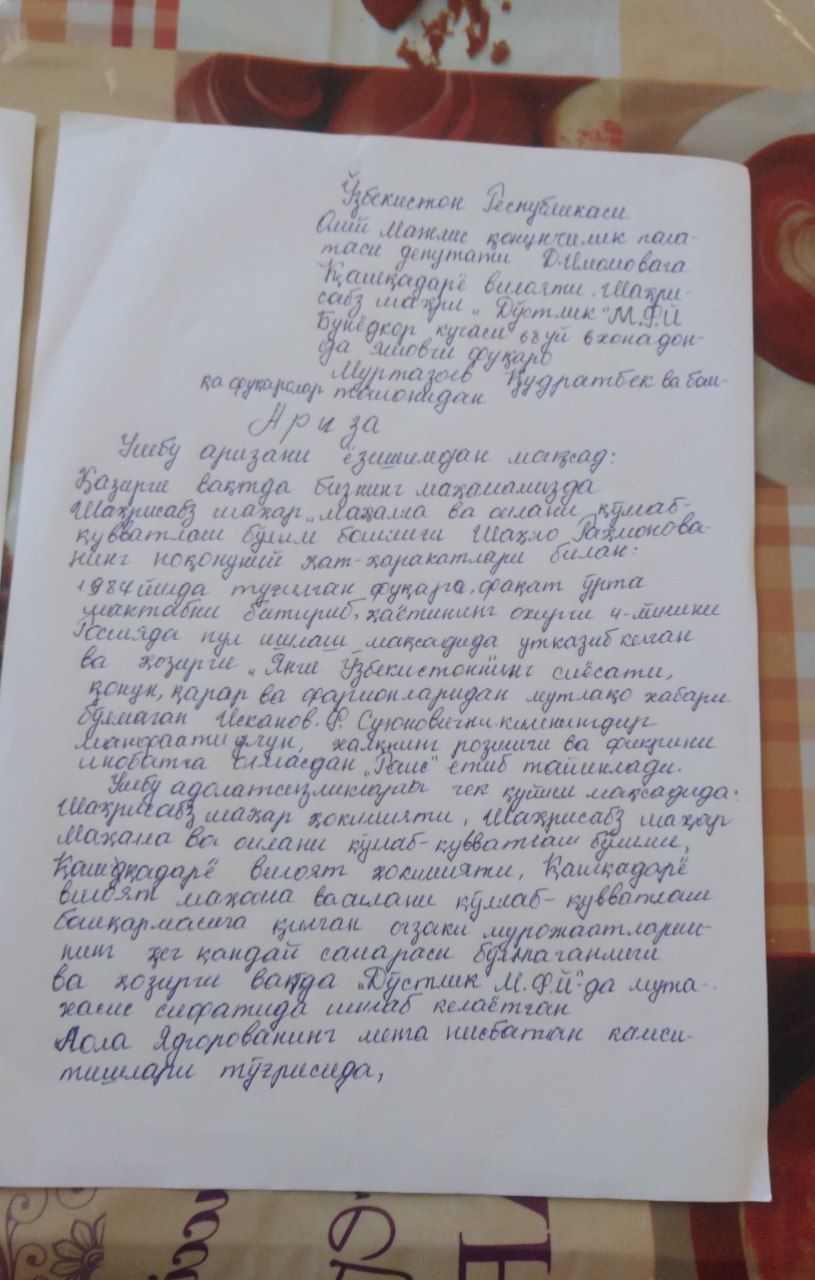 Ўзбекистон Республикаси
Олий Мажлис қонунчилик пала-
таси депутати Д.Имомовага
Қашқадарё вилояти, Шаҳри-
сабз шаҳри „Дўстлик" М.Ф.Й
Бунёдкор кучаси 68 уй 6 хонадон-
да яшовчи фуқаро
Муртазоев Қудратбек ва бош-
қа фуқаролар томонидан
Ариза
Ушбу аризани ёзишимдан мақсад:
Ҳазирги вақтда бизнинг маҳалламизда
Шаҳрисабз шаҳар „маҳалла ва оилани қўллаб-
қувватлаш бўлими бошлиғи Шаҳло Раҳмонова-
нинг ноқонуний ҳат-ҳаракатлари билан:
1984 йилда туғилган фуқаро, фақат ўрта
мактабни битириб, ҳаётининг охирги 4-йилини
Россияда пул ишлаш мақсадида утказиб келган
ва ҳозирги „Янги Ўзбекистон"нинг сиёсати,
қонун, қарар ва фармонларидан мутлақо хабари
бўлмаган Исканов.Ф. Суюновични кимнингдир
манфаати учун, халқнинг розилиги ва фикрини
инобатга олмасдан „Раис" етиб тайинлади.
Ушбу адолатсизликларга чек қуйиш мақсадида:
Шаҳрисабз шаҳар ҳокимияти, Шаҳрисабз шаҳар
Маҳалла ва оилани қўллаб-қувватлаш бўлими,
Қашқадарё вилоят хокимияти, Қашқадарё
вилоят маҳалла ва оилани қўллаб-қувватлаш
бошқармасига қилган оғзаки мурожаатларим-
нинг ҳеч қандай самараси бўлмаганлиги
ва ҳозирги вақтда „Дўстлик М.Ф.Й"-да мута-
хасис сифатида ишлаб келаётган
Лола Ядгорованинг менга нисбатан камси-
тишлари тўғрисида,